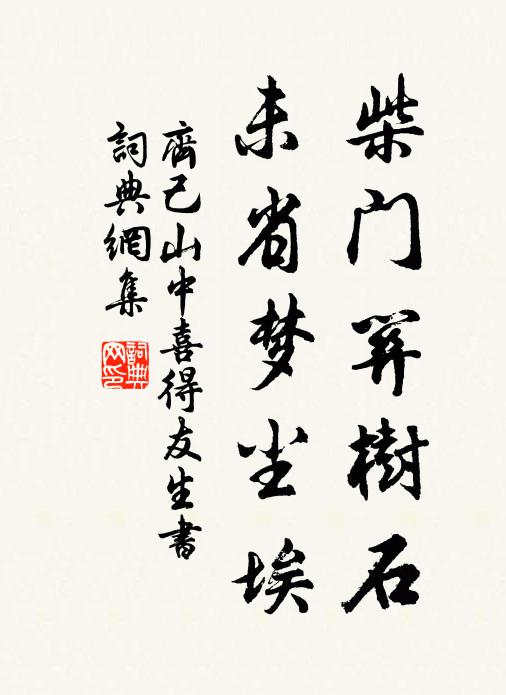 柴门关樹石
未省梦尘埃
齊己山中喜得友生書
詞典網集
詞典网印